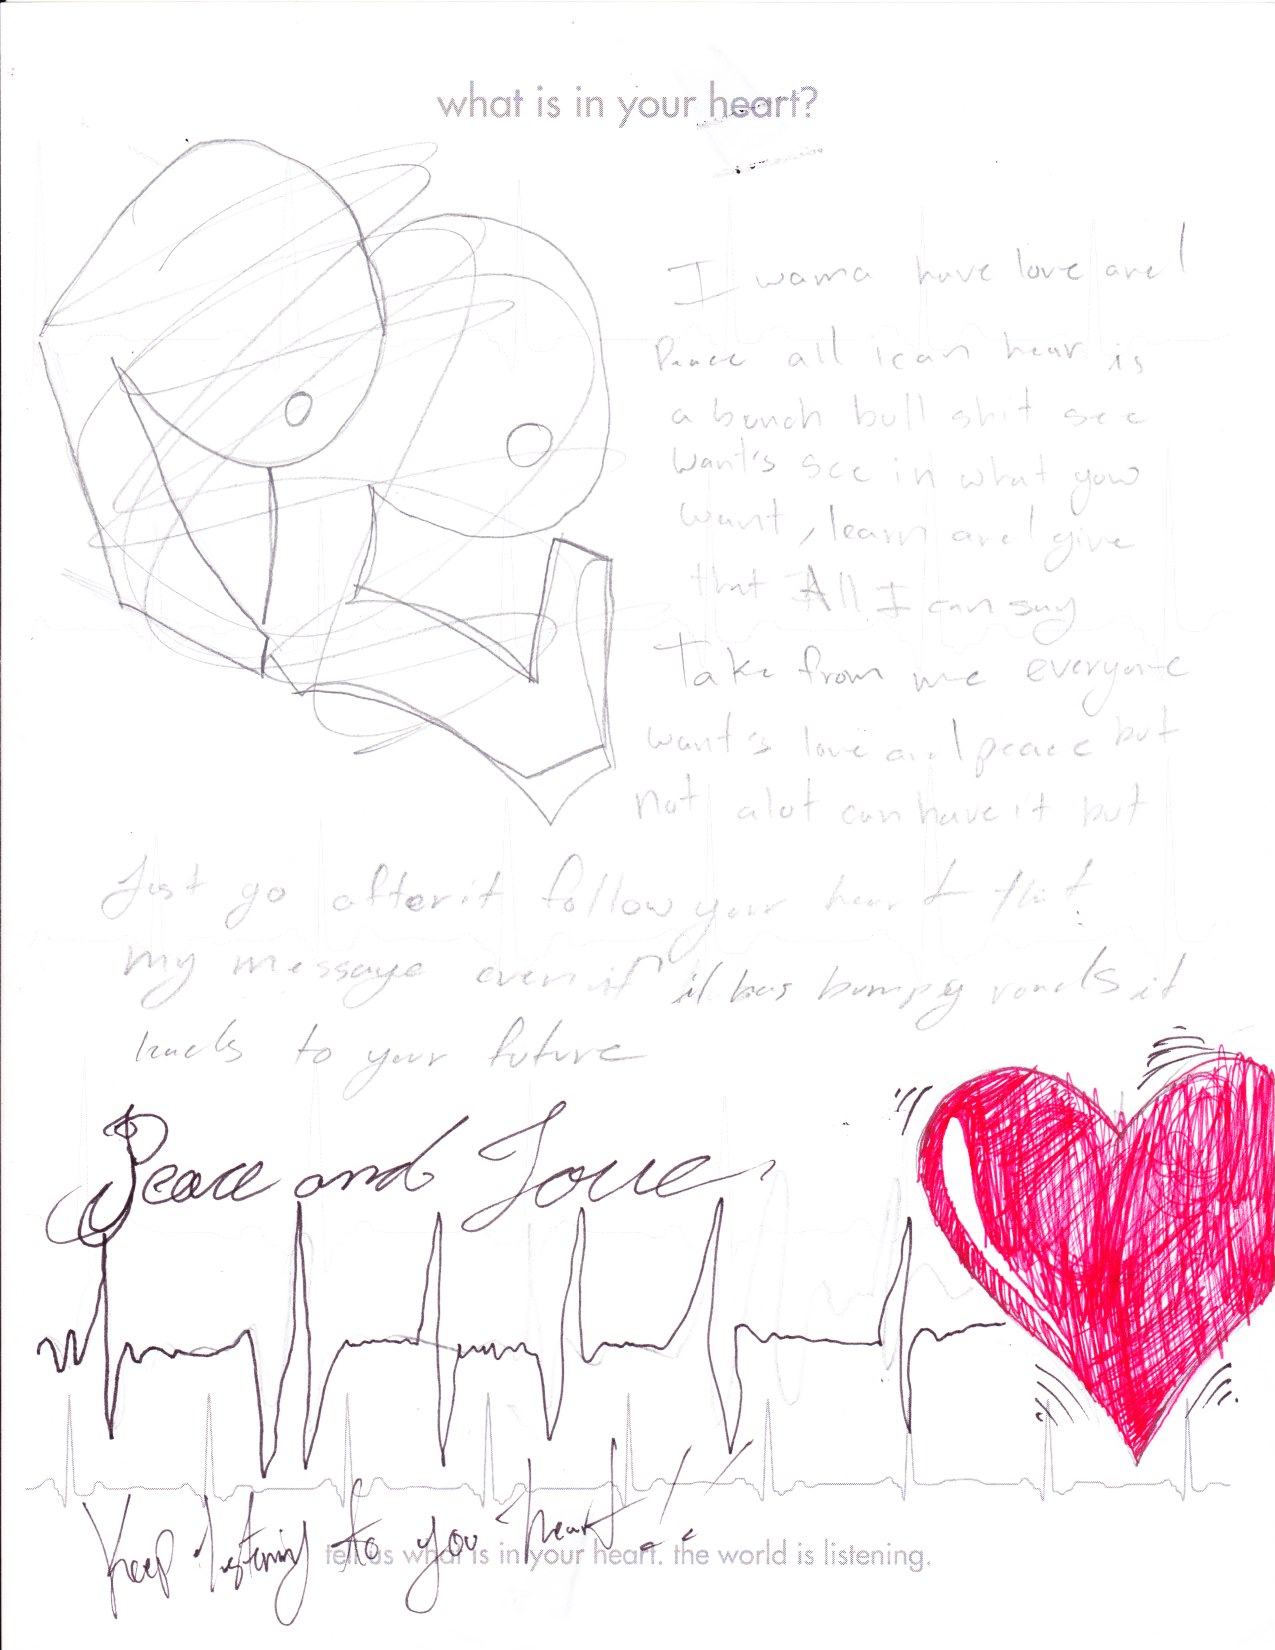 what is in your heart?
I wanna have love and
Peace all i can hear is
a bunch bull shit see
want's see in what you
want, learn and give
that All I can say
Take from me everyone
want's love and peace but
not alot can have it but
Just go after it follow your heart that
my message even if it has bumpy roads it
leads to your future
Peace and Love
Keep listening to you heart!!
tell us what is in your heart. the world is listening.